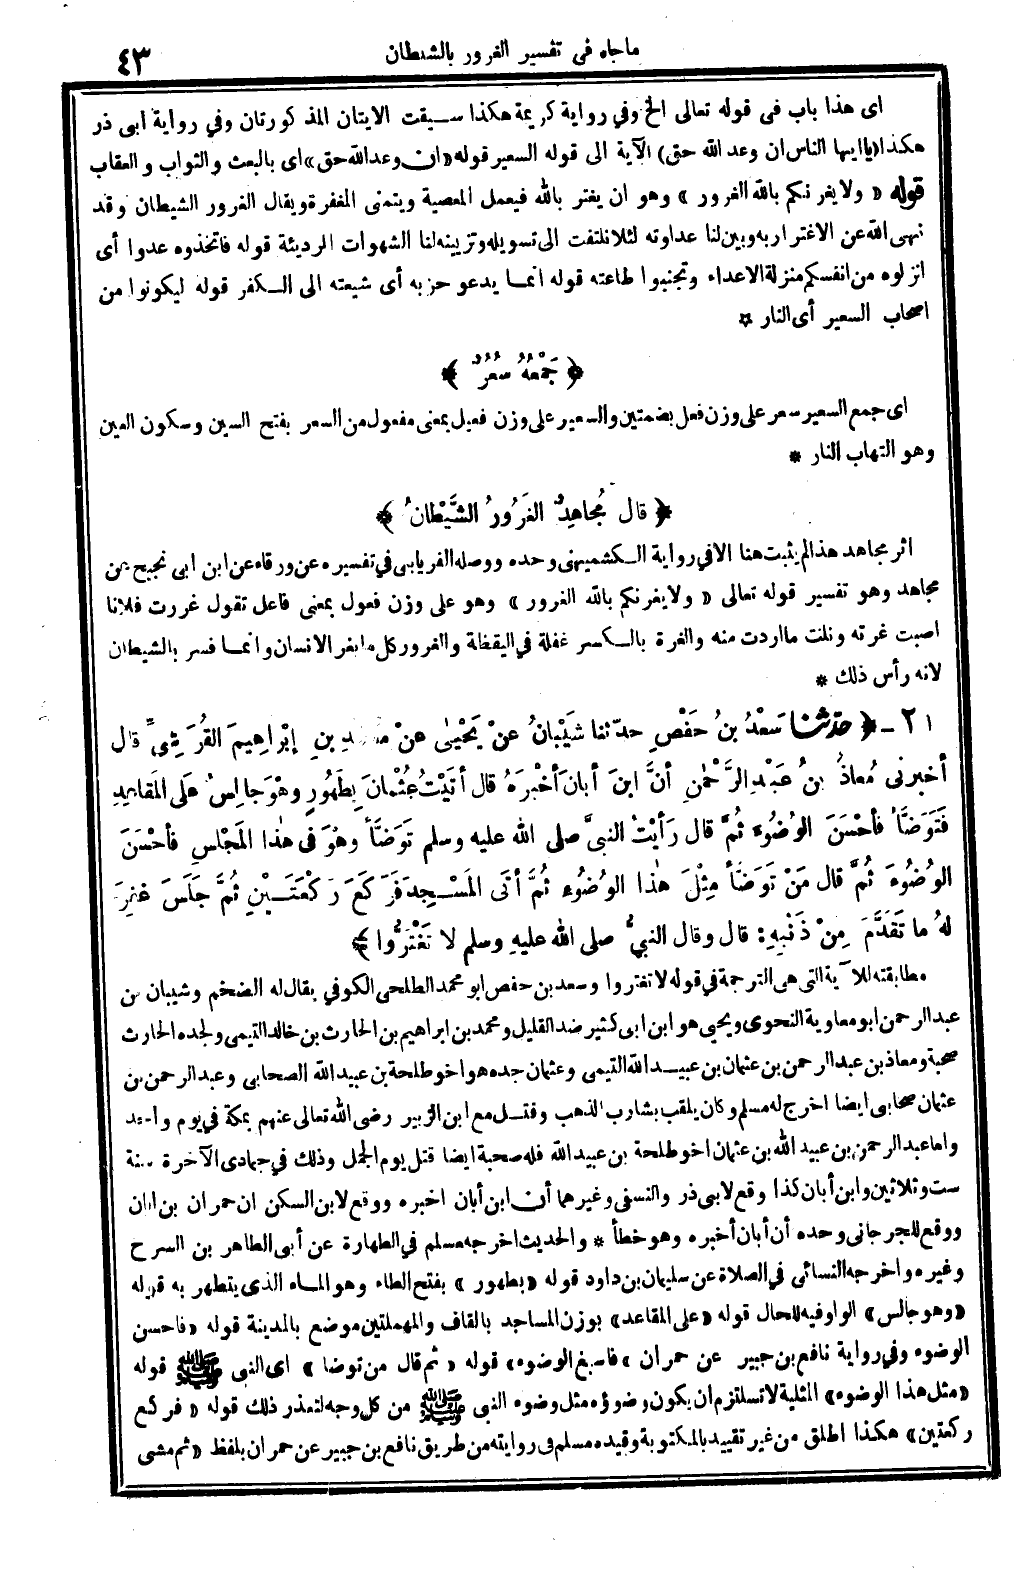 ما جاء فى تفسير الغرور بالشيطان
٤٣
اى هذا باب فى قوله تعالى الخ وفي رواية كريمة هكذا سيقت الايتان المذكورتان وفي رواية ابى ذر
هكذا (ياايها الناس ان وعد الله حق) الآية الى قوله السعير قوله «ان وعد الله حق» اى بالبعث والثواب والعقاب
قوله « ولا يغرنكم بالله الغرور » وهو ان يغتر بالله فيعمل المعصية ويتمنى المغفرة ويقال الغرور الشيطان وقد
نهى الله عن الاغترار به وبين لنا عداوته لئلا نلتفت الى تسويله وتزيينه لنا الشهوات الرديئة قوله فاتخذوه عدوا أى
انزلوه من انفسكم منزلة الاعداء وتجنبوا طاعته قوله انما يدعو حزبه أى شيعته الى الكفر قوله ليكونوا من
اصحاب السعير أى النار ☆
﴿ جَمْعُهُ سُعُرٌ ﴾
اى جمع السعير سعر على وزن فعل بضمتين والسعير على وزن فعيل بمعنى مفعول من السعر بفتح السين وسكون العين
وهو التهاب النار *
﴿ قال مُجاهِدٌ الغَرُورُ الشَّيْطانُ ﴾
اثر مجاهد هذا لم يثبت هنا الا في رواية الكشميهنى وحده ووصله الفريابى في تفسيره عن ورقاء عن ابن ابى نجيح عن
مجاهد وهو تفسير قوله تعالى « ولا يغرنكم بالله الغرور » وهو على وزن فعول بمعنى فاعل تقول غررت فلانا
اصبت غرته ونلت ما اردت منه والغرة بالكسر غفلة في اليقظة والغرور كل ما يغر الانسان وانما فسر بالشيطان
لانه رأس ذلك *
٢١ - ﴿ حدّثنا سَعْدُ بنُ حَفْصٍ حدّثنا شَيْبانُ عنْ يَحْيٰى عنْ مُحَمَّدِ بنِ إبْراهِيمَ القُرَشِىِّ قال
أخبرنى مُعاذُ بنُ عَبْدِ الرَّحْمٰنِ أنَّ ابنَ أبانَ أخْبَرَهُ قال أتَيْتُ عُثْمانَ بِطَهُورٍ وهْوَ جالِسٌ عَلَى المَقاعِدِ
فَتَوَضَّأَ فأحْسَنَ الوُضُوءَ ثُمَّ قال رَأيْتُ النبىَّ صلى الله عليه وسلم تَوَضَّأَ وهُوَ فى هٰذا المَجْلِسِ فأحْسَنَ
الوُضُوءَ ثُمَّ قال مَنْ تَوَضَّأ مِثْلَ هٰذا الوُضُوءِ ثُمَّ أتَى المَسْجِدَ فَرَكَعَ رَكْعَتَيْنِ ثُمَّ جَلَسَ غُفِرَ
لَهُ ما تَقَدَّمَ مِنْ ذَنْبِهِ: قال وقال النبىُّ صلى الله عليهِ وسلم لا تَغْتَرُّوا ﴾
مطابقته للآية التى هى الترجمة في قوله لا تغتروا وسعد بن حفص ابو محمد الطلحى الكوفي يقال له الضخم وشيبان بن
عبد الرحمن ابو معاوية النحوى ويحيى هو ابن ابى كثير ضد القليل ومحمد بن ابراهيم بن الحارث بن خالد التيمى ولجده الحارث
صحبة ومعاذ بن عبد الرحمن بن عثمان بن عبيد الله التيمى وعثمان جده هو اخو طلحة بن عبيد الله الصحابى وعبد الرحمن بن
عثمان صحابى ايضا اخرج له مسلم وكان يلقب بشارب الذهب وقتل مع ابن الزبير رضى الله تعالى عنهم بمكة في يوم واحد
واما عبد الرحمن بن عبيد الله بن عثمان اخو طلحة بن عبيد الله فله صحبة ايضا قتل يوم الجمل وذلك في جمادى الآخرة سنة
ست وثلاثين وابن أبان كذا وقع لابى ذر والنسفى وغيرهما أن ابن أبان اخبره ووقع لابن السكن ان حمران بن ابان
ووقع للجرجانى وحده أن أبان أخبره وهو خطأ * والحديث اخرجه مسلم في الطهارة عن أبى الطاهر بن السرح
وغيره واخرجه النسائى في الصلاة عن سليمان بن داود قوله «بطهور» بفتح الطاء وهو الماء الذى يتطهر به قوله
«وهو جالس» الواو فيه للحال قوله «على المقاعد» بوزن المساجد بالقاف والمهملتين موضع بالمدينة قوله «فاحسن
الوضوء وفي رواية نافع بن جبير عن حمران «فاسبغ الوضوء» قوله « ثم قال من توضا » اى النبى ﷺ قوله
«مثل هذا الوضوء» المثلية لا تستلزم ان يكون وضوؤه مثل وضوء النبى ﷺ من كل وجه لتعذر ذلك قوله « فركع
ركعتين» هكذا اطلق من غير تقييد بالمكتوبة وقيده مسلم فى روايته من طريق نافع بن جبير عن حمران بلفظ «ثم مشى